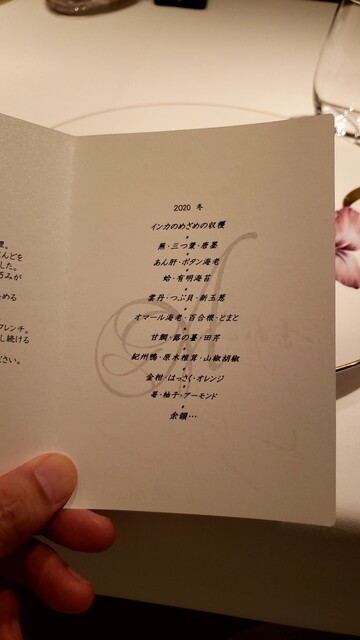 理。
んどを
した。
巧みが
める
フレンチ。
し続ける
ださい。
2020 冬
インカのめざめの収穫
蕪・三つ葉・唐墨
あん肝・ボタン海老
蛤・有明海苔
雲丹・つぶ貝・新玉葱
オマール海老・百合根・とまと
甘鯛・蕗の薹・田芹
紀州鴨・原木椎茸・山椒胡椒
金柑・はっさく・オレンジ
苺・柚子・アーモンド
余韻…